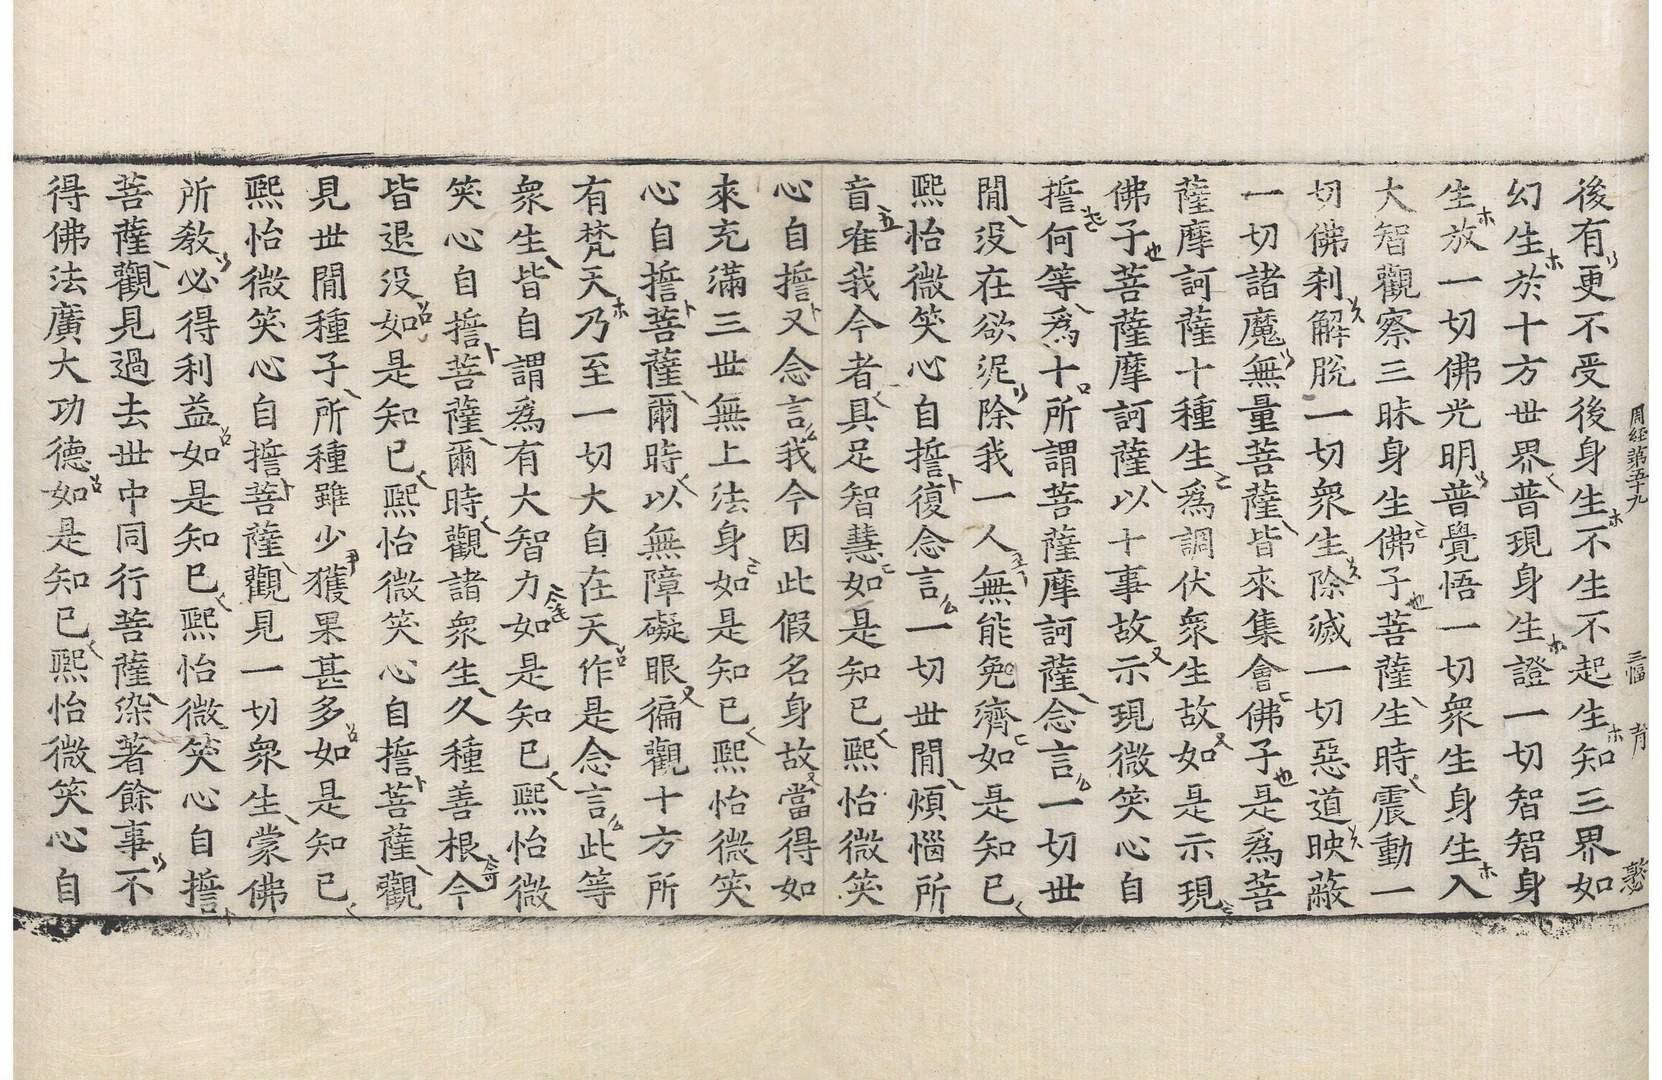 周経第五十九 三幅
後有更不受後身生不生不起生知三界如
幻生於十方世界普現身生證一切智智身
生放一切佛光明普覺悟一切衆生身生入
大智觀察三昧身生佛子菩薩生時震動一
切佛刹解脫一切衆生除滅一切惡道映蔽
一切諸魔無量菩薩皆來集會佛子是爲菩
薩摩訶薩十種生爲調伏衆生故如是示現
佛子菩薩摩訶薩以十事故示現微笑心自
誓何等爲十所謂菩薩摩訶薩念言一切世
閒没在欲泥除我一人無能免濟如是知已
熙怡微笑心自誓復念言一切世閒煩惱所
盲唯我今者具足智慧如是知已熙怡微笑
心自誓又念言我今因此假名身故當得如
來充滿三世無上法身如是知已熙怡微笑
心自誓菩薩爾時以無障礙眼徧觀十方所
有梵天乃至一切大自在天作是念言此等
衆生皆自謂爲有大智力如是知已熙怡微
笑心自誓菩薩爾時觀諸衆生久種善根今
皆退没如是知已熙怡微笑心自誓菩薩觀
見世閒種子所種雖少獲果甚多如是知已
熙怡微笑心自誓菩薩觀見一切衆生蒙佛
所敎必得利益如是知已熙怡微笑心自誓
菩薩觀見過去世中同行菩薩染著餘事不
得佛法廣大功德如是知已熙怡微笑心自